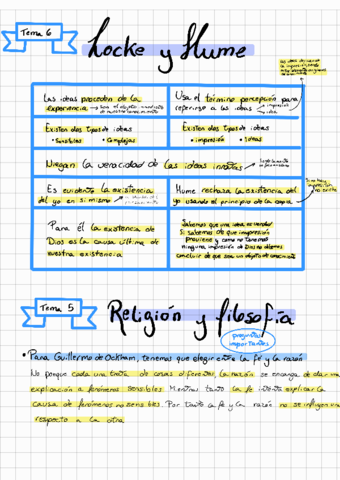 Tema 6
Locke y Hume
Las ideas proceden de la
experiencia
Usa el término percepción para
referirse a las ideas
impresión
ideas
Existen dos tipos de ideas
• Sensibles • Complejas
Existen dos tipos de ideas
• impresión • ideas
Niegan la veracidad de las ideas innatas
Es evidente la existencia
del yo en si mismo
Hume rechaza la existencia del
yo usando el principio de la copia
Para él la existencia de
Dios es la causa última de
nuestra existencia
Sabemos que una idea es verdad
si sabemos de que impresión
proviene y como no tenemos
ninguna impresión de Dios no podemos
concluir de que sea un objeto de conocimiento
Tema 5
Religión y filosofía
preguntas
importantes
• Para Guillermo de Ockham, tenemos que elegir entre la fe y la razón
No porque cada una trata de cosas diferentes, la razón se encarga de dar una
explicación a fenómenos sensibles. Mientras tanto la fe intenta explicar la
causa de fenómenos no sensibles. Por tanto la fe y la razón no se influyen una
respecto a la otra